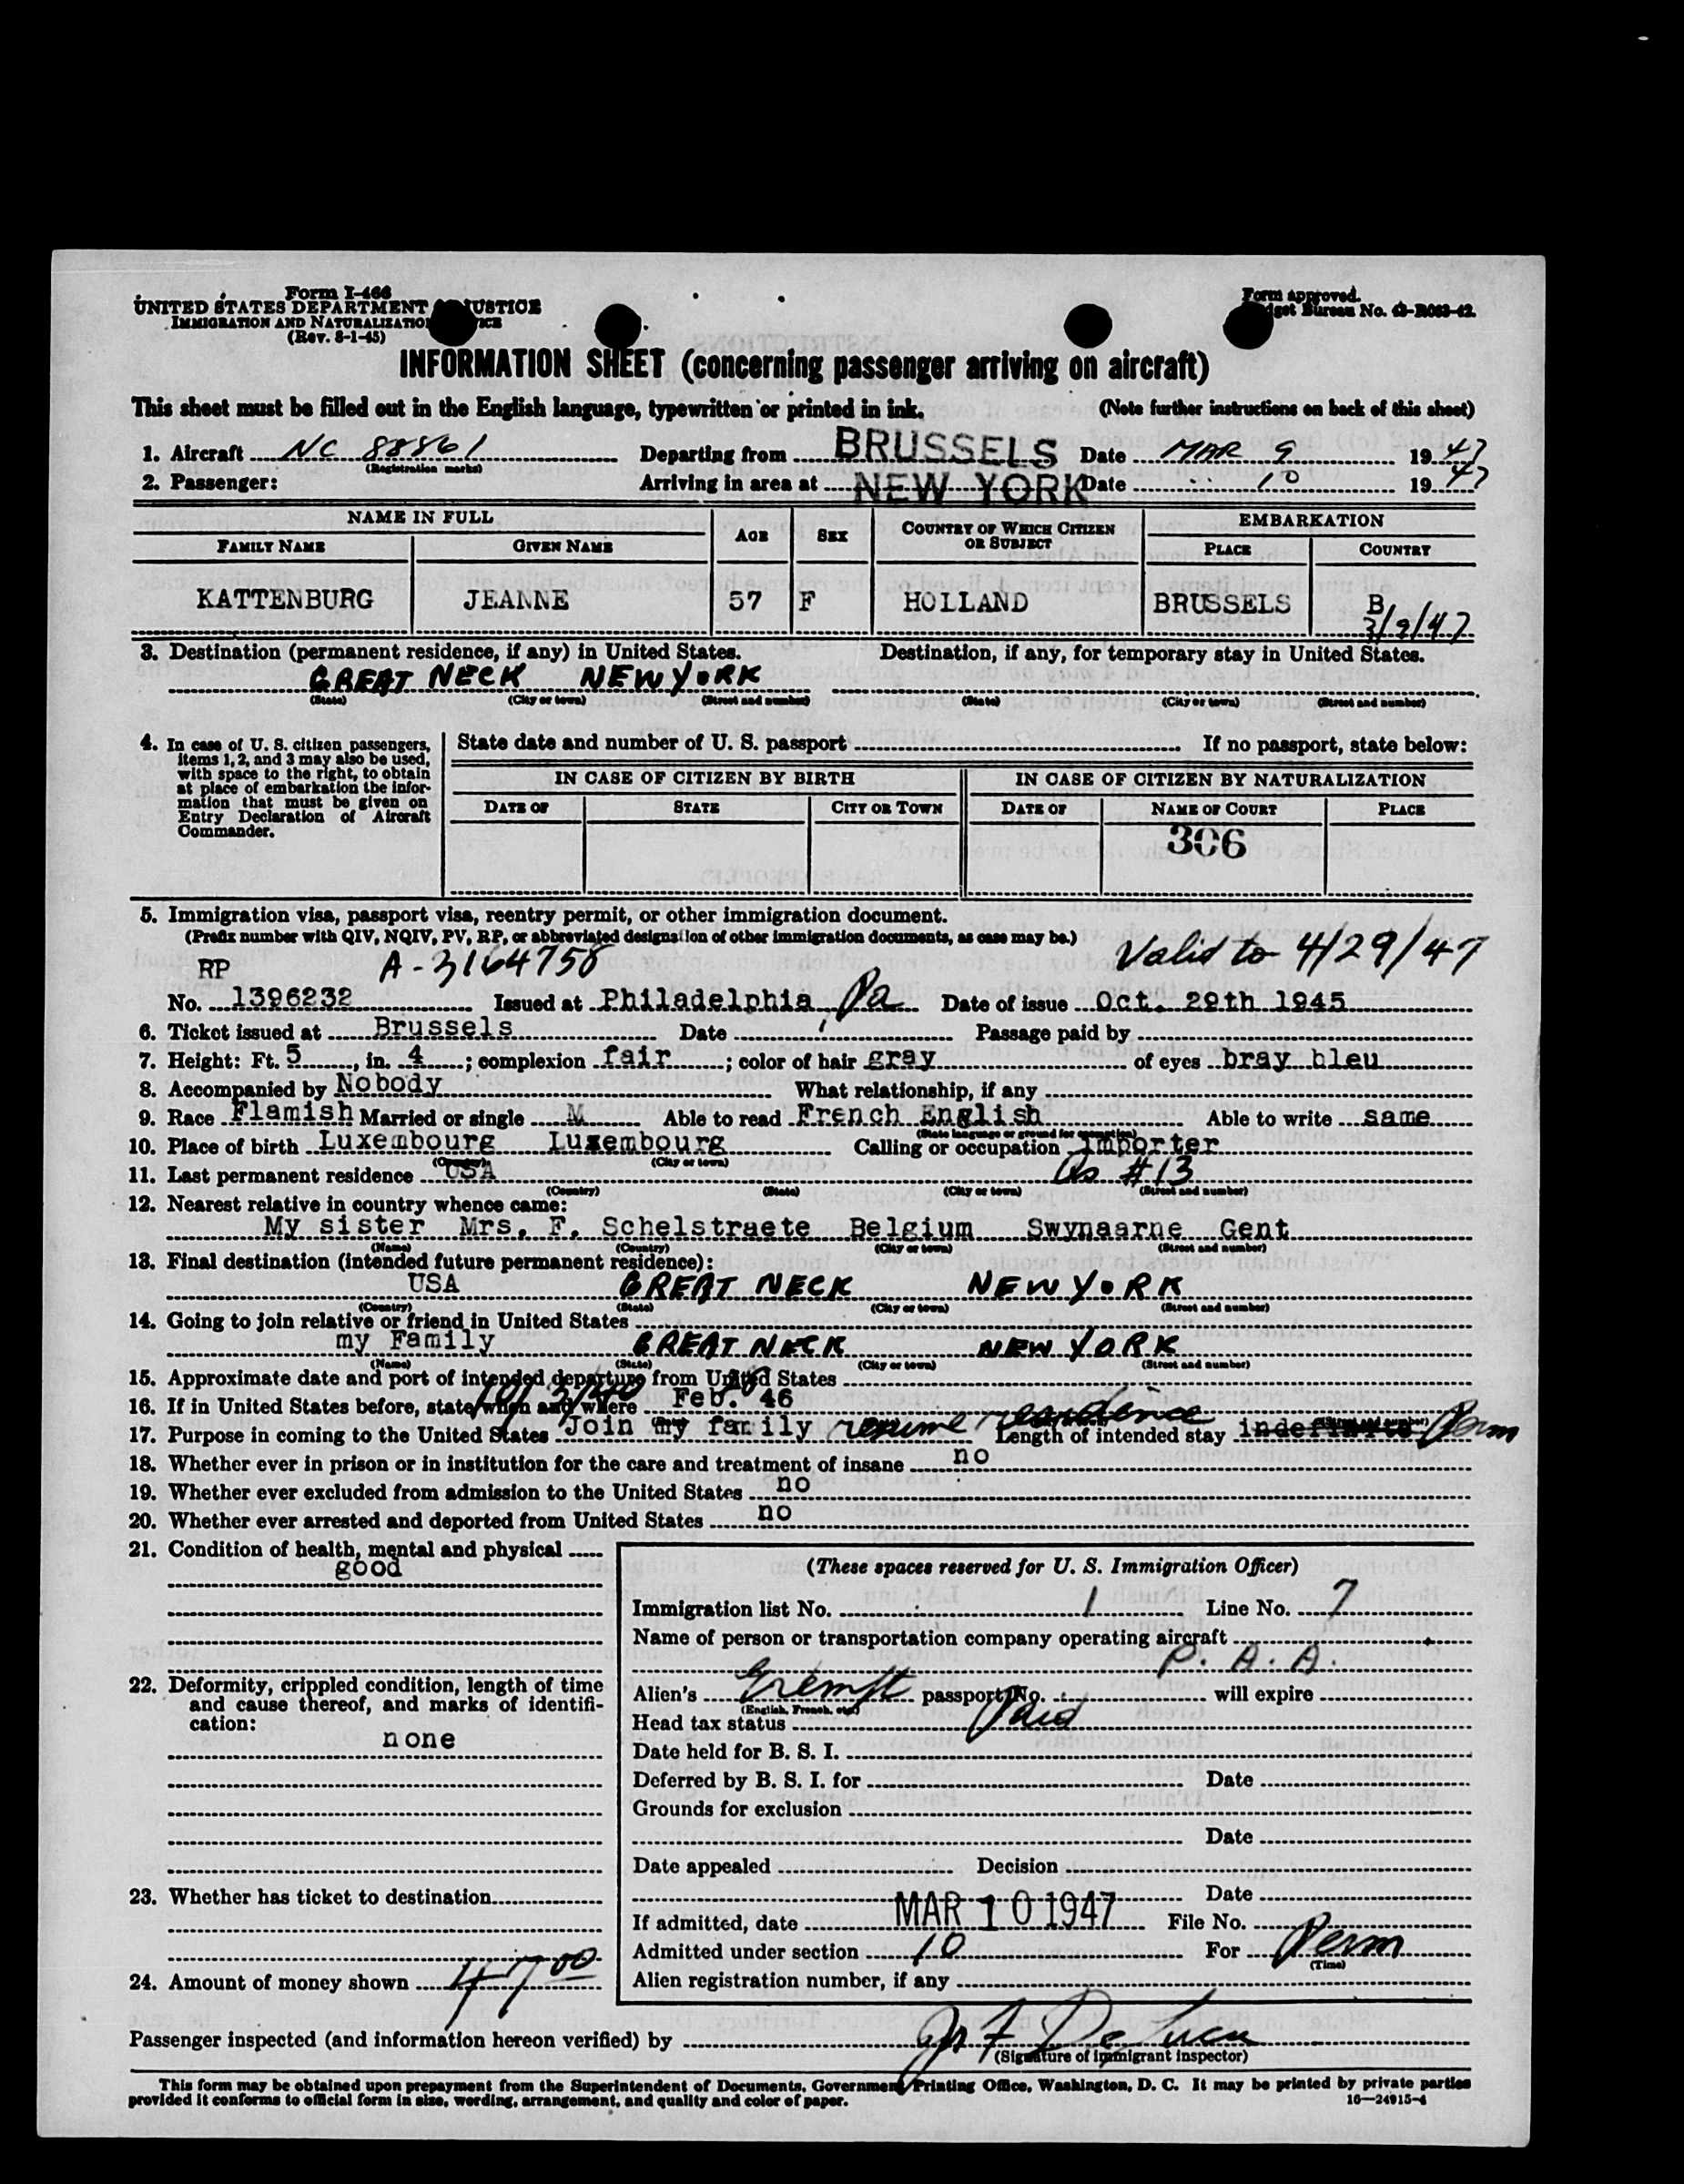 Form I-466
UNITED STATES DEPARTMENT JUSTICE
IMMIGRATION AND NATURALIZATIO
(Rev. 8-1-45)
Form approved.
dget Bureau No. 43-R083-42.
INFORMATION SHEET (concerning passenger arriving on aircraft)
This sheet must be filled out in the English language, typewritten or printed in ink. (Note further instructions on back of this sheet)
1. Aircraft NC 88861 Departing from BRUSSELS Date MAR 9 1947
(Registration marks)
2. Passenger: Arriving in area at NEW YORK Date 10 1947
NAME IN FULL AGE SEX COUNTRY OF WHICH CITIZEN OR SUBJECT EMBARKATION
FAMILY NAME GIVEN NAME PLACE COUNTRY
KATTENBURG JEANNE 57 F HOLLAND BRUSSELS B
3/9/47
3. Destination (permanent residence, if any) in United States. Destination, if any, for temporary stay in United States.
GREAT NECK NEW YORK
(State) (City or town) (Street and number) (State) (City or town) (Street and number)
4. In case of U. S. citizen passengers, items 1, 2, and 3 may also be used, with space to the right, to obtain at place of embarkation the information that must be given on Entry Declaration of Aircraft Commander.
State date and number of U. S. passport If no passport, state below:
IN CASE OF CITIZEN BY BIRTH IN CASE OF CITIZEN BY NATURALIZATION
DATE OF STATE CITY OR TOWN DATE OF NAME OF COURT PLACE
306
5. Immigration visa, passport visa, reentry permit, or other immigration document.
(Prefix number with QIV, NQIV, PV, RP, or abbreviated designation of other immigration documents, as case may be.)
RP A-3164758 Valid to 4/29/47
No. 1396232 Issued at Philadelphia, Pa Date of issue Oct. 29th 1945
6. Ticket issued at Brussels Date Passage paid by
7. Height: Ft. 5, in. 4; complexion fair; color of hair gray of eyes bray bleu
8. Accompanied by Nobody What relationship, if any
9. Race Flamish Married or single M Able to read French English Able to write same
(State language or ground for exemption)
10. Place of birth Luxembourg Luxembourg Calling or occupation Importer
(Country) (City or town)
11. Last permanent residence USA As #13
(Country) (State) (City or town) (Street and number)
12. Nearest relative in country whence came:
My sister Mrs. F. Schelstraete Belgium Swynaarne Gent
(Name) (Country) (City or town) (Street and number)
13. Final destination (intended future permanent residence):
USA GREAT NECK NEW YORK
(Country) (State) (City or town) (Street and number)
14. Going to join relative or friend in United States
my Family GREAT NECK NEW YORK
(Name) (State) (City or town) (Street and number)
15. Approximate date and port of intended departure from United States
16. If in United States before, state when and where Feb. 46
17. Purpose in coming to the United States Join my family resume residence Length of intended stay indefinite Perm
18. Whether ever in prison or in institution for the care and treatment of insane no
19. Whether ever excluded from admission to the United States no
20. Whether ever arrested and deported from United States no
21. Condition of health, mental and physical
good
22. Deformity, crippled condition, length of time and cause thereof, and marks of identification:
none
23. Whether has ticket to destination
24. Amount of money shown 47 00
(These spaces reserved for U. S. Immigration Officer)
Immigration list No. 1 Line No. 7
Name of person or transportation company operating aircraft
P. A. A.
Alien's Exempt passport No. will expire
(English, French, etc.)
Head tax status Paid
Date held for B. S. I.
Deferred by B. S. I. for Date
Grounds for exclusion
Date
Date appealed Decision
Date
If admitted, date MAR 10 1947 File No.
Admitted under section 10 For Perm
(Time)
Alien registration number, if any
Passenger inspected (and information hereon verified) by
(Signature of immigrant inspector)
This form may be obtained upon prepayment from the Superintendent of Documents, Government Printing Office, Washington, D. C. It may be printed by private parties
provided it conforms to official form in size, wording, arrangement, and quality and color of paper. 16—24915-4